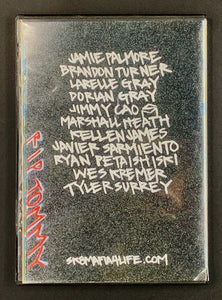 JAMIE PALMORE
BRANDON TURNER
LARELLE GRAY
DORIAN GRAY
JIMMY CAO
MARSHALL HEATH
KELLEN JAMES
JAVIER SARMIENTO
RYAN PETAISHISKI
WES KREMER
TYLER SURREY
SK8MAFIA4LIFE.COM
R.I.P. TOMMY